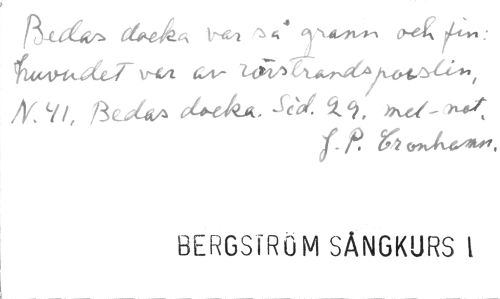 Bedas docka var så grann och fin:
huvudet var av rörstrandsporslin,
N. 41, Bedas docka. Sid. 29. mel-not.
J. P. Cronhamn.
BERGSTRÖM SÅNGKURS I